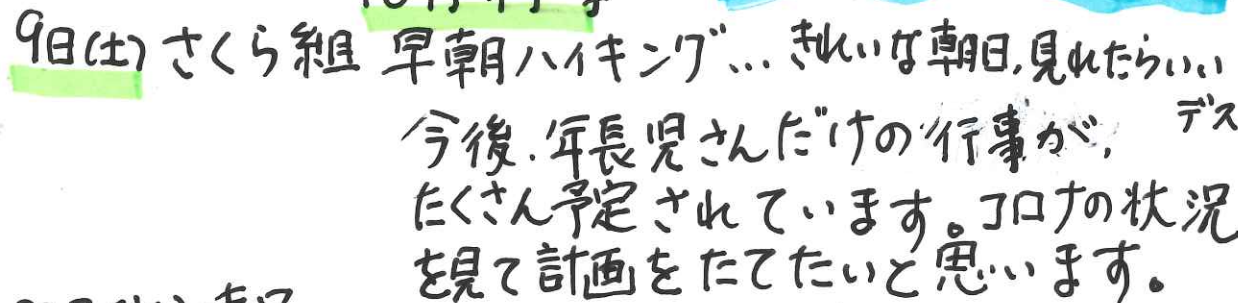 9日(土) さくら組 早朝ハイキング… きれいな朝日、見れたらいい
デス
今後、年長児さんだけの行事が、
たくさん予定されています。コロナの状況
を見て計画をたてたいと思います。